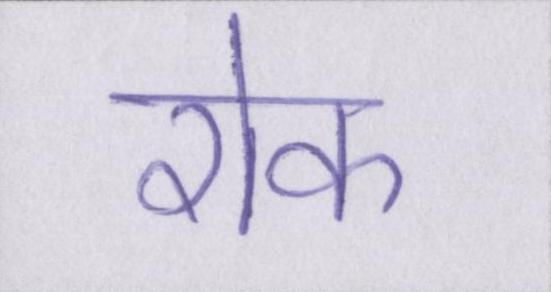 रोक